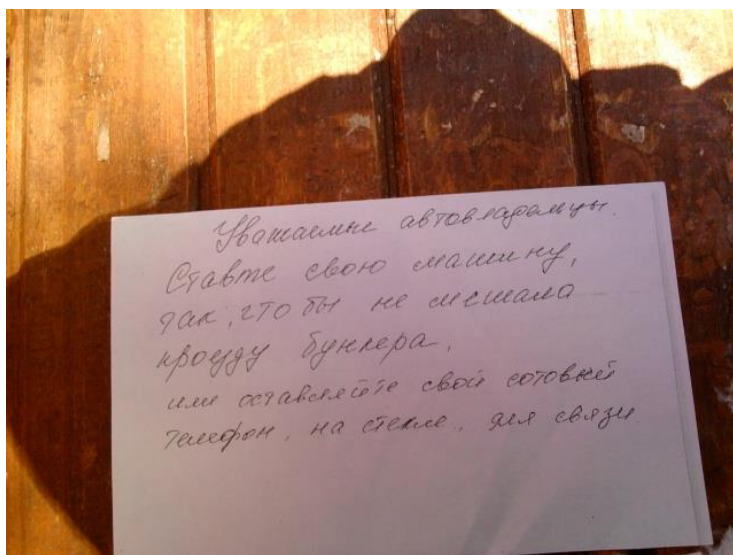 Уважаемые автовладельцы.
Ставте свою машину,
так, что бы не мешала
проезду бункера,
или оставляйте свой сотовый
телефон, на стекле, для связи